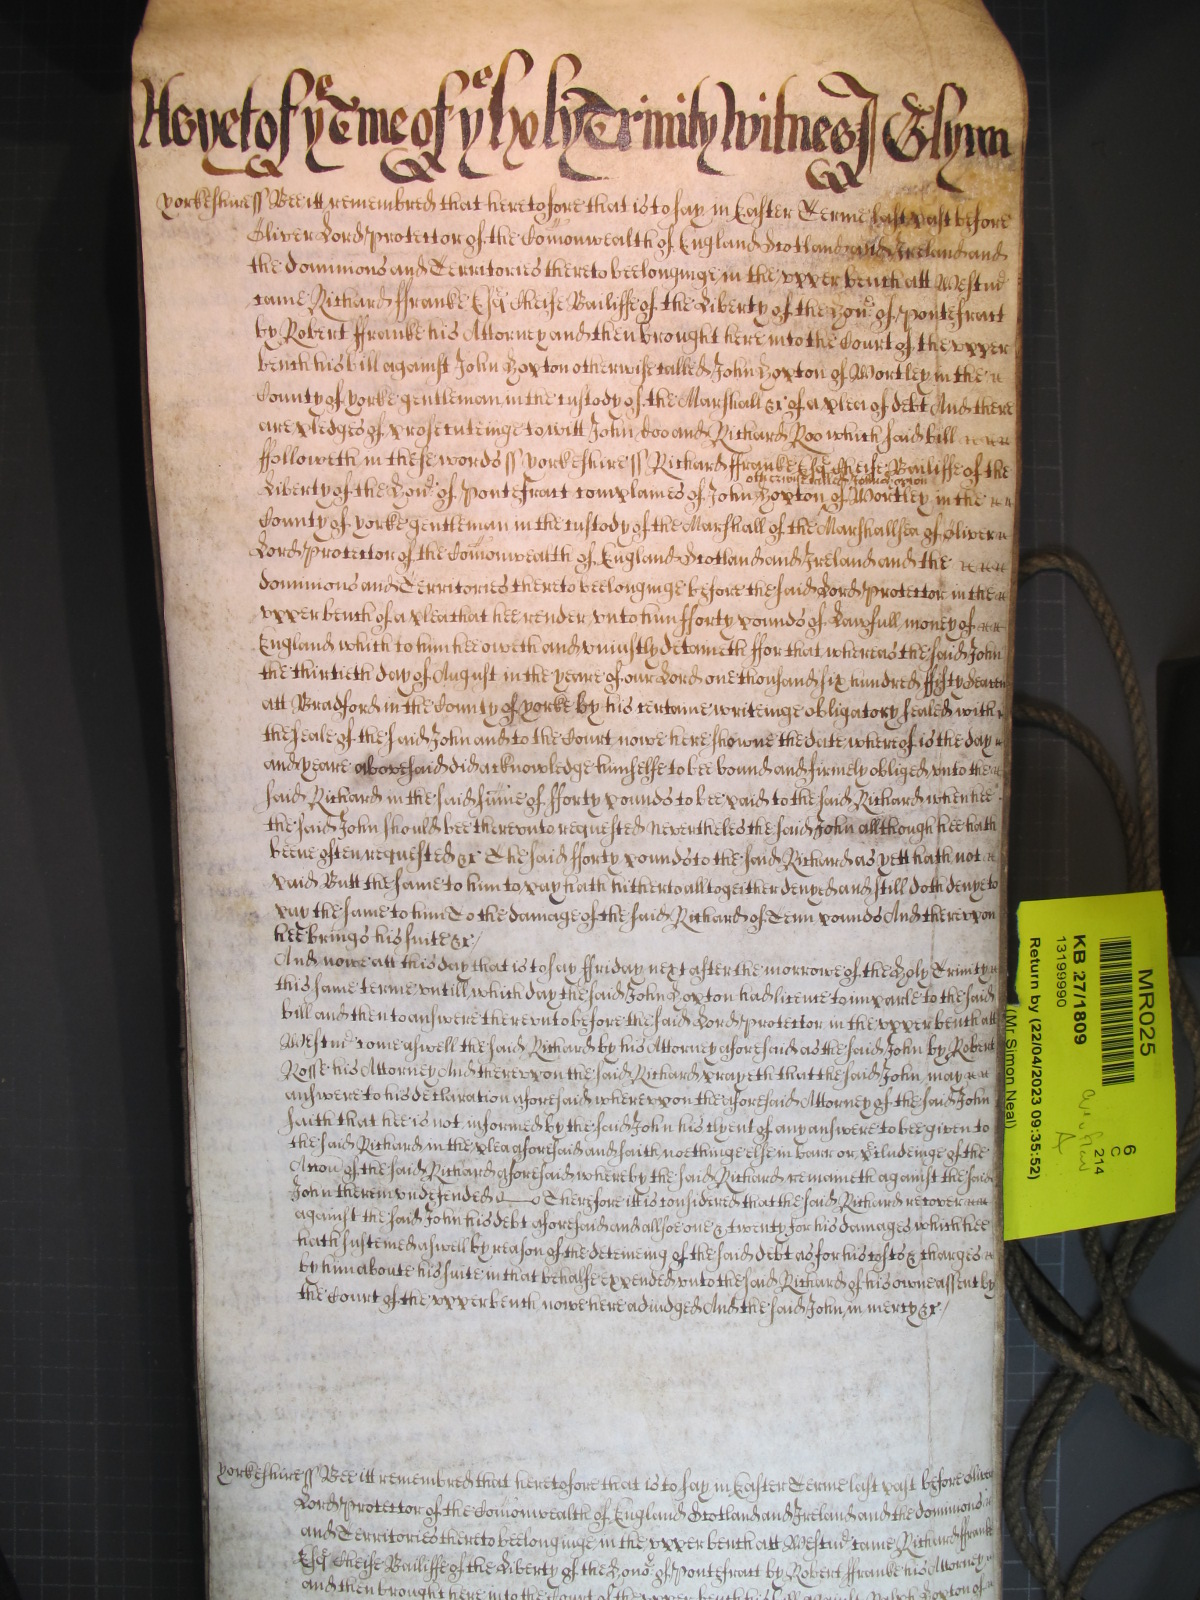 As yet of ye Terme of ye holy Trinity Witnes J Glynn
Yorkeshire ss Bee itt remembred that heretofore that is to say in Easter Terme last past before
Oliver Lord Protector of the Comonwealth of England Scotland and Ireland and
the dominions and Territories thereto beelonginge in the upper bench att Westmr
came Richard ffranke Esqr Cheife Bailiffe of the Liberty of the Honor of Pontefract
by Robert ffranke his Attorney and then brought here into the Court of the upper
bench his bill against John Hoyton otherwise called John Hoyton of Wortley in the
County of Yorke gentleman in the custody of the Marshall &c of a plea of debt And there
are pledges of prosecuteinge to witt John doo and Richard Roo which said bill
ffolloweth in these words ss Yorkeshire ss Richard ffranke Esqr Cheife Bailiffe of the
Liberty of the Honor of Pontefract complaines of John Hoyton otherwise called John Hoyton of Wortley in the
County of Yorke gentleman in the custody of the Marshall of the Marshallsea of Oliver
Lord Protector of the Comonwealth of England Scotland and Ireland and the
dominions and Territories thereto beelonginge before the said Lord Protector in the
upper bench of a plea that hee render unto him fforty pounds of Lawfull money of
England which to him hee oweth and uniustly detaineth ffor that whereas the said John
the thirtieth day of August in the yeare of our Lord one thousand six hundred ffifty seaven
att Bradford in the County of Yorke by his certaine writeinge obligatory sealed with
the seale of the said John and to the Court nowe here showne the date whereof is the day
and yeare abovesaid did acknowledge himselfe to bee bound and firmely obliged unto the
said Richard in the said sume of fforty pounds to bee paid to the said Richard when hee
the said John should bee thereunto requested Nevertheles the said John allthough hee hath
beene often requested &c The said fforty pounds to the said Richard as yett hath not
paid Butt the same to him to pay hath hitherto alltogeither denyed and still doth denye to
pay the same to him To the damage of the said Richard of Tenn pounds And thereupon
hee brings his suite &c
And nowe att this day that is to say ffriday next after the morrowe of the Holy Trinity
this same terme untill which day the said John Hoyton had licence to imparle to the said
bill and then to answere thereunto before the said Lord Protector in the upper bench att
Westmr come aswell the said Richard by his Attorney aforesaid as the said John by Robert
Rosse his Attorney And thereupon the said Richard prayeth that the said John may
answere to his declaration aforesaid whereupon the aforesaid Attorney of the said John
saith that hee is not informed by the said John his clyent of any answere to bee given to
the said Richard in the plea aforesaid and saith noethinge else in barr or preludeinge of the
Accon of the said Richard aforesaid whereby the said Richard remaineth against the said
John therein undefended Therefore itt is considered that the said Richard recover
against the said John his debt aforesaid and allsoe one & twenty for his damages which hee
hath susteined aswell by reason of the deteineing of the said debt as for his costs & charges
by him aboute his suite in that behalfe expended unto the said Richard of his owne assent by
the Court of the upper bench nowe here adiudged And the said John in mercy &c
Yorkeshire ss Bee itt remembred that heretofore that is to say in Easter Terme last past before Oliver
Lord Protector of the Comonwealth of England Scotland and Ireland and the dominions
and Territories thereto beelonginge in the upper bench att Westmr came Richard ffranke
Esqr Cheife Bailiffe of the Liberty of the Honor of Pontefract by Robert ffranke his Attorney
and then brought here into the Court of the upper bench his bill against Ralph Hoyton of
MR025
6
C
214
KB 27/1809
13199990
Return by (22/04/2023 09:35:52)
(Mr Simon Neal)